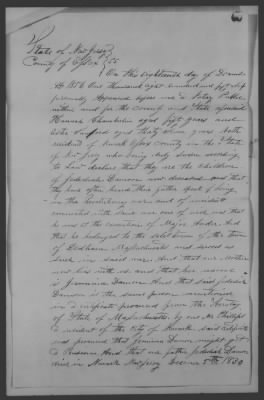 State of New Jersey
County of Essex } SS
On this Eighteenth day of Decem
A.D. 1856 One thousand eight hundred and fifty six
personally Appeared before me a Notary Public
within and for the County and State aforesaid
Hannah Chamberlin aged fifty years and
aged thirty nine years both
resident of Newark Essex County in the State
of New Jersey who being duly sworn according
to law declare that they are the children
of Jedediah Damon now deceased and that
they have often heard their father speak of being
in the revolutionary war and of incidents
connected with same one of which was that
he was at the execution of Major Andre And
that he belonged to the of the town
of Dedham Massachusetts and served as
such in said war. And that our mother
now lives with us and that her name
is Jemima Damon And that said Jedediah
Damon is the same person mentioned
in a certificate procured from the Secretary
of State of Massachusetts by one Mr Phillips
a resident of the City of Newark said certificate
was procured that Jemima Damon might get
a Pension And that our father Jedediah Damon
died in Newark New Jersey 5th 1830